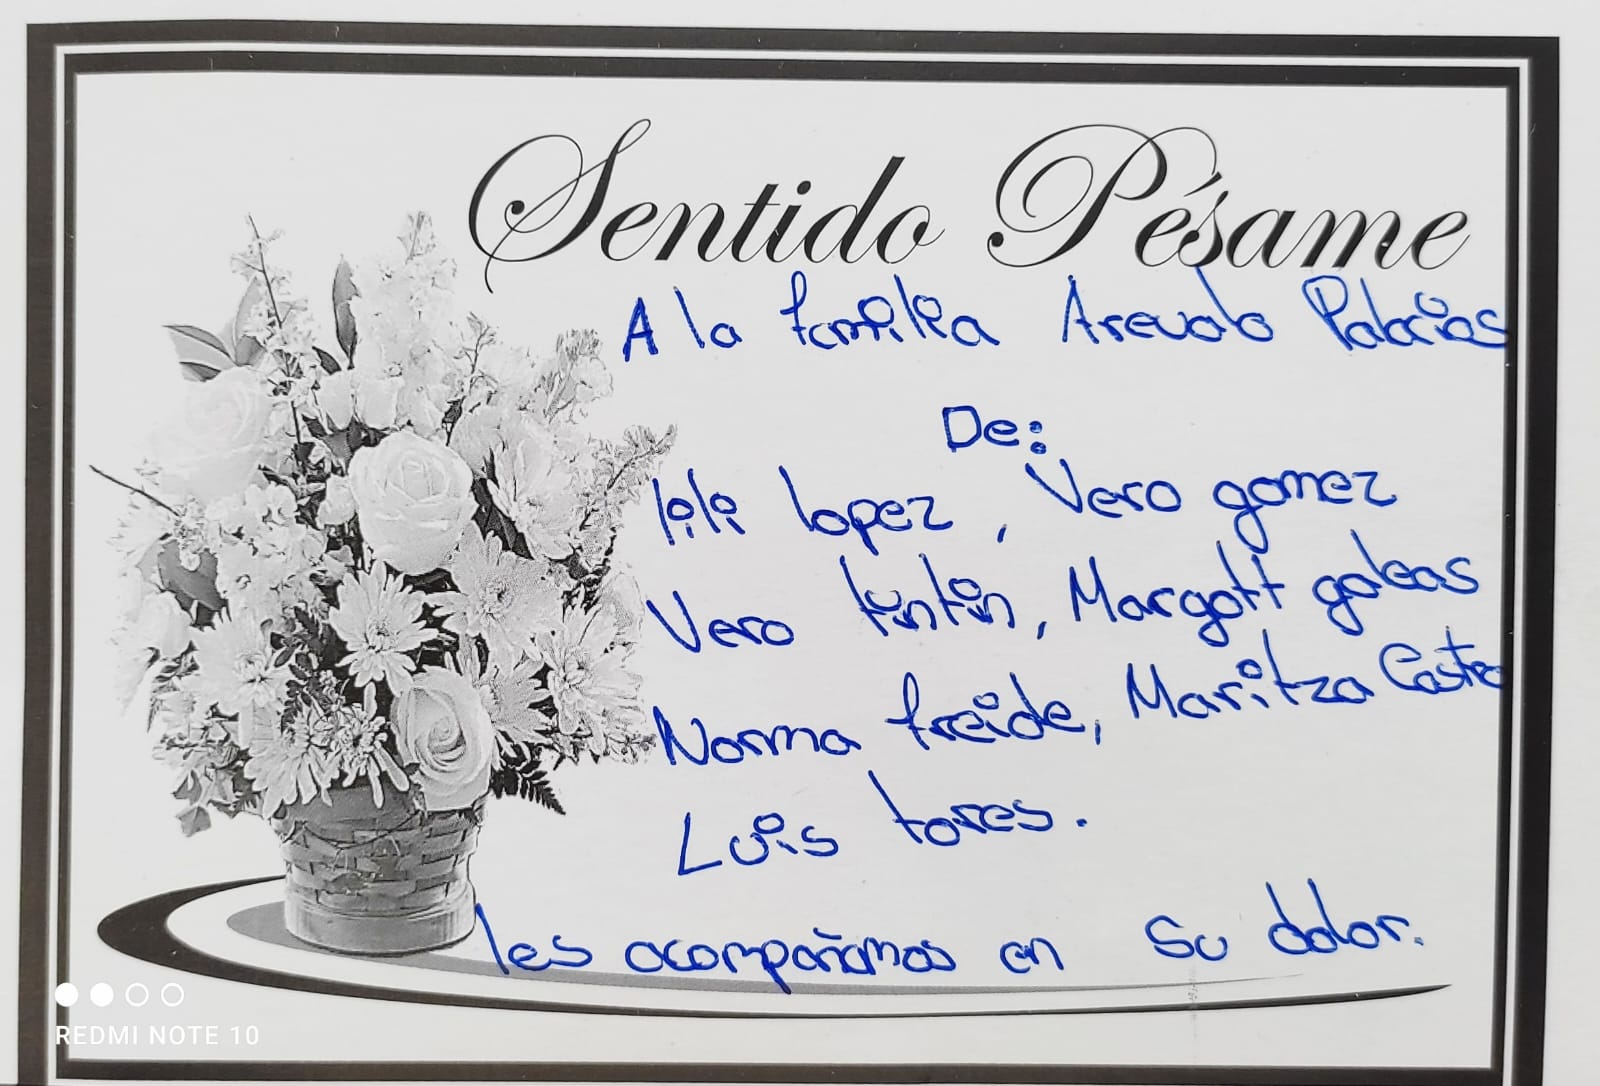 Sentido Pésame
A la familia Arevalo Palacios
De:
lili lopez, Vero gomez
Vero tintin, Margott galeas
Norma freide, Maritza Castro
Luis torres.
les acompañamos en su dolor.
REDMI NOTE 10